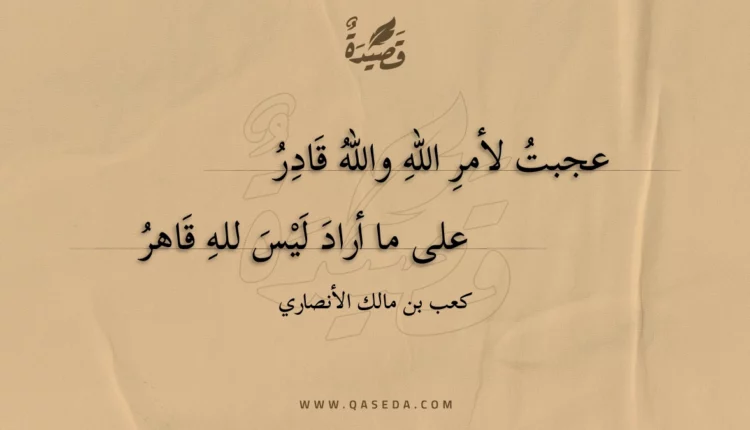 قَصِيْدَةٌ
عجبتُ لأمرِ اللهِ واللهُ قَادِرُ
على ما أرادَ لَيْسَ للهِ قَاهرُ
كعب بن مالك الأنصاري
WWW.QASEDA.COM